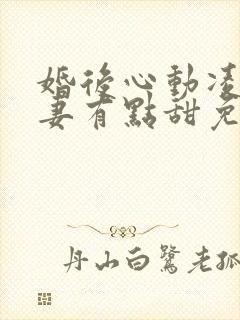 婚後心動凌
妻有點甜免
丹山白鷺老孤